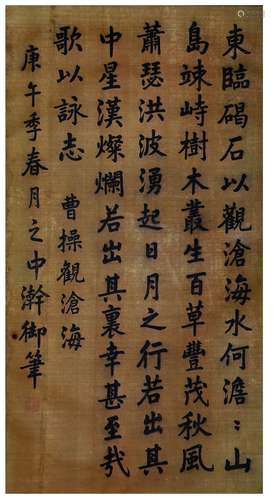 東臨碣石以觀滄海水何澹〻山
島竦峙樹木叢生百草豐茂秋風
蕭瑟洪波湧起日月之行若出其
中星漢燦爛若出其裏幸甚至哉
歌以詠志 曹操觀滄海
庚午季春月之中瀚御筆